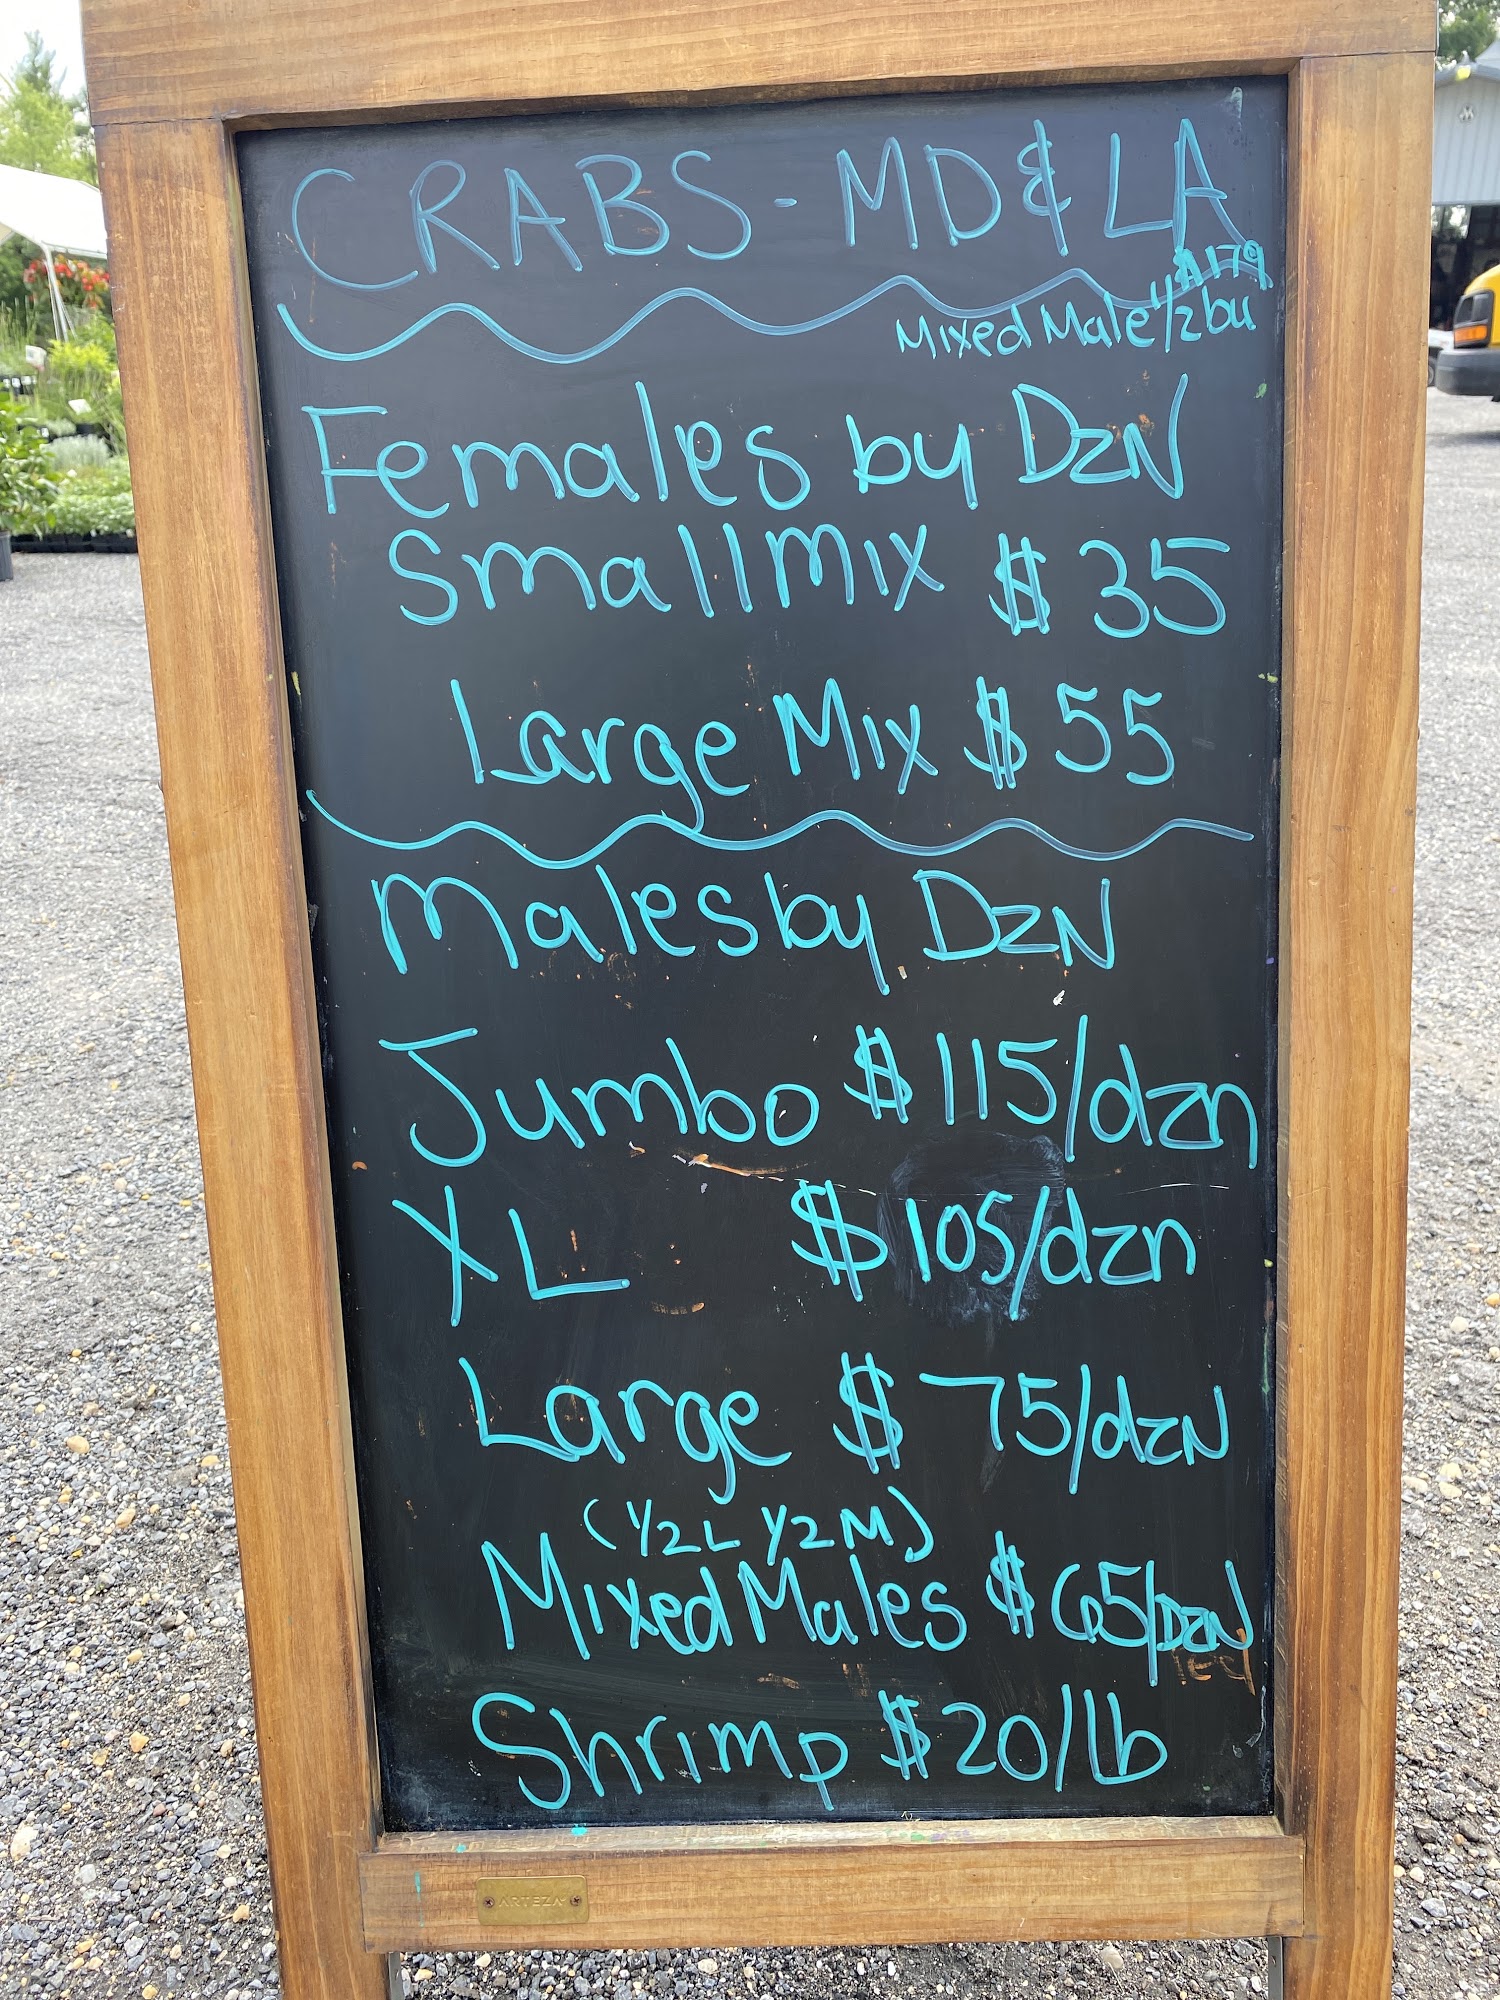 CRABS - MD & LA
$179
Mixed Male 1/2 bu
Females by DzN
Small Mix $35
Large Mix $55
Males by DzN
Jumbo $115/dzn
XL $105/dzn
Large $75/dzN
(1/2 L 1/2 M)
Mixed Males $65/DzN
Shrimp $20/lb
ARTEZA